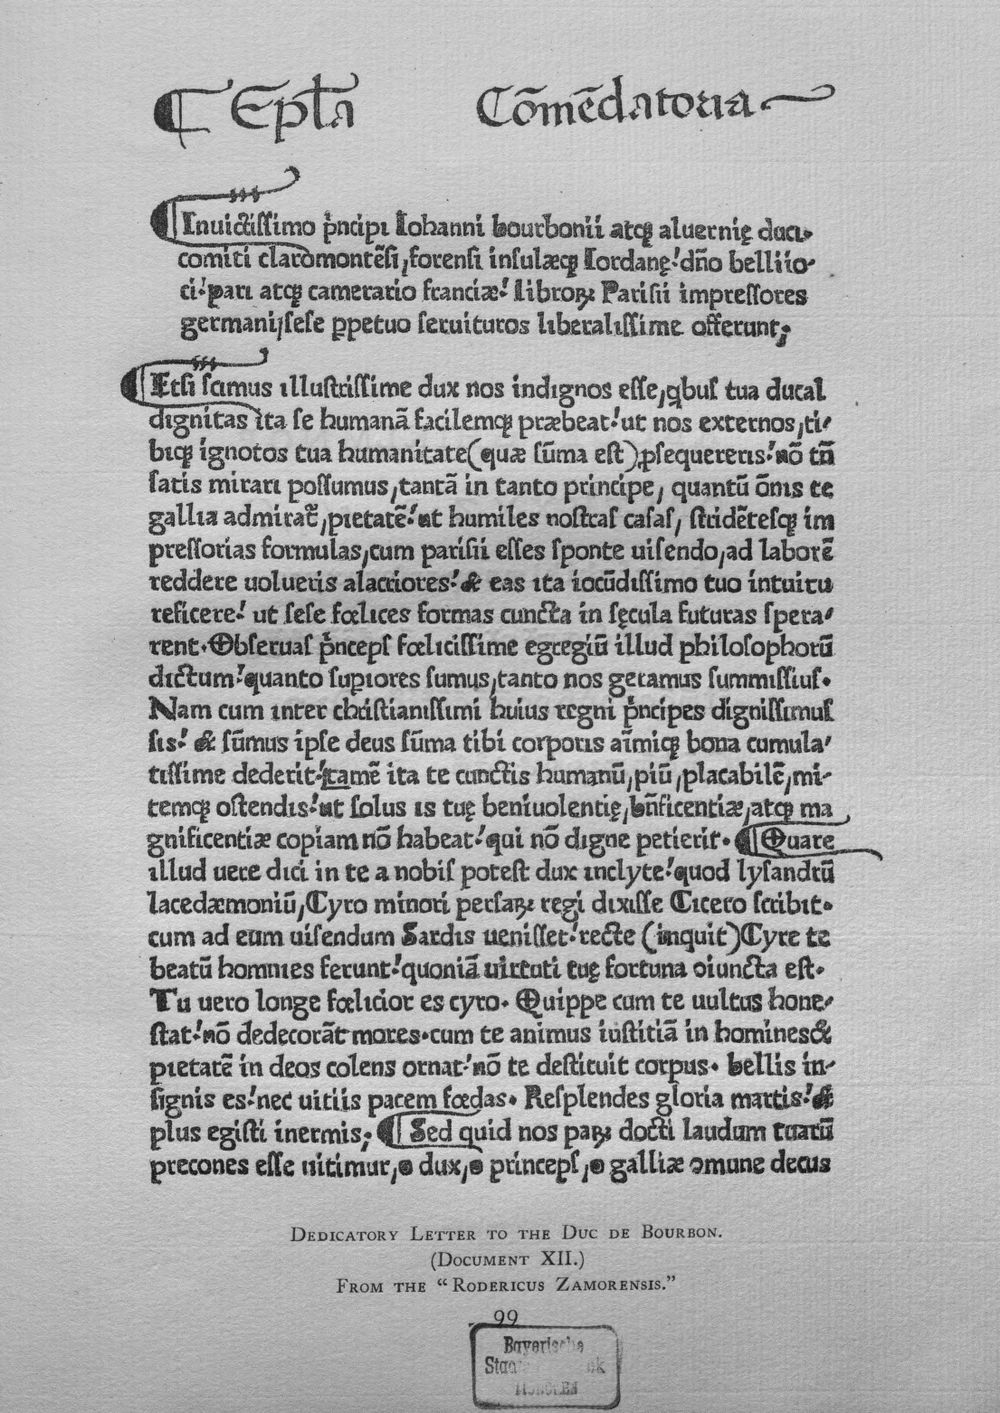 ¶ Ep̅l̅a Cōmēdatoria
¶ Inuictissimo p̍ncipi Iohanni bourbonii atqꝫ aluernię duci·
comiti claromontēsi, forensi insulæqꝫ Iordanę! dn̄o belliio-
ci! pari atqꝫ camerario franciæ! libroꝝ Parisii impressores
germani, sese ꝑpetuo seruituros liberalissime offerunt;
¶ Etsi scimus illustrissime dux nos indignos esse, q̍bus tua ducal
dignitas ita se humanā facilemqꝫ præbeat! ut nos externos, ti-
biqꝫ ignotos tua humanitate (quæ sūma est) ꝓsequereris! nō tn̄
satis mirari possumus, tantā in tanto principe, quantū ōnis te
gallia admirat᷑, pietatē! ut humiles nostras casas, stridētesqꝫ im
pressorias formulas, cum parisii esses sponte uisendo, ad laborē
reddere uolueris alacriores! & eas ita iocūdissimo tuo intuitu
reficere! ut sese fœlices formas cuncta in sęcula futuras spera-
rent. Obseruas p̍nceps fœlicissime egregiū illud philosophorū
dictum! quanto supiores sumus, tanto nos geramus summissius.
Nam cum inter christianissimi huius regni p̍ncipes dignissimus
sis! & sūmus ipse deus sūma tibi corporis aīmiqꝫ bona cumula-
tissime dederit! tamē ita te cunctis humanū, piū, placabilē, mi-
temqꝫ ostendis! ut solus is tuę beniuolentię, bn̄ficentiæ, atqꝫ ma
gnificentiæ copiam nō habeat! qui nō digne petierit. ¶ Quare
illud uere dici in te a nobis potest dux inclyte! quod lysandrū
lacedæmoniū, Cyro minori persaꝝ regi dixisse Cicero scribit.
cum ad eum uisendum Sardis uenisset! recte (inquit) Cyre te
beatū homines ferunt! quoniā uirtuti tuę fortuna ↄiuncta est.
Tu uero longe fœlicior es cyro. Quippe cum te uultus hone-
stat! nō dedecorāt mores. cum te animus iustitiā in homines &
pietatē in deos colens ornat! nō te destituit corpus. bellis in-
signis es! nec uitiis pacem fœdas. Resplendes gloria martis! &
plus egisti inermis; ¶ Sed quid nos paꝝ docti laudum tuarū
precones esse nitimur, o dux, o princeps, o galliæ ↄmune decus
DEDICATORY LETTER TO THE DUC DE BOURBON.
(DOCUMENT XII.)
FROM THE “RODERICUS ZAMORENSIS.”
99
Bayerische
MÜNCHEN